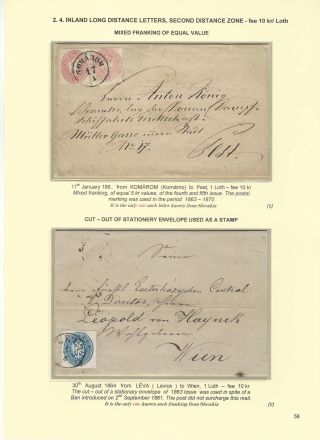 2. 4. INLAND LONG DISTANCE LETTERS, SECOND DISTANCE ZONE - fee 10 kr/ Loth
MIXED FRANKING OF EQUAL VALUE
KOMÁROM
17
Herrn Anton König
Beamter
Pest.
17th January 186. from KOMÁROM (Komárno) to Pest, 1 Loth – fee 10 kr
Mixed franking, of equal 5 kr values, of the fourth and fifth issue. The postal
marking was used in the period 1863 – 1870
It is the only one such letter known from Slovakia
(c)
CUT – OUT OF STATIONERY ENVELOPE USED AS A STAMP
Central
Leopold von Haynek
Wohlgeboren
Wien
30th August 1864 from LÉVA ( Levice ) to Wien, 1 Loth – fee 10 kr
The cut – out of a stationery envelope of 1863 issue was used in spite of a
Ban introduced on 2nd September 1861. The post did not surcharge this mail.
It is the only one known such franking from Slovakia
(c)
58